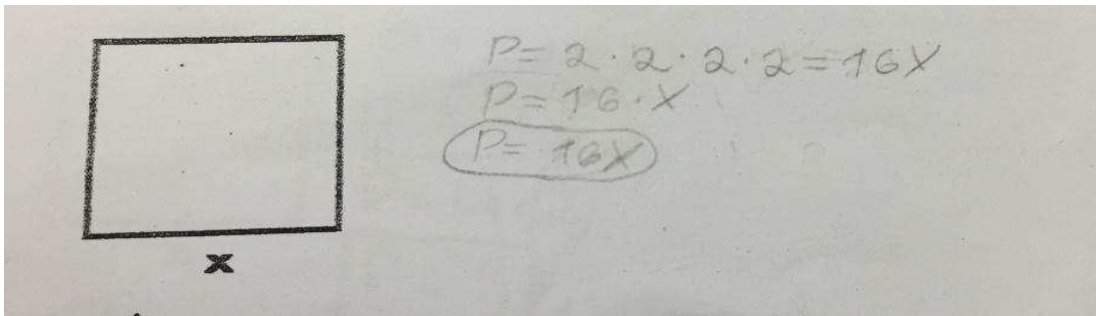 P= 2 · 2 · 2 · 2 = 16X
P= 16 · X
P= 16X
x